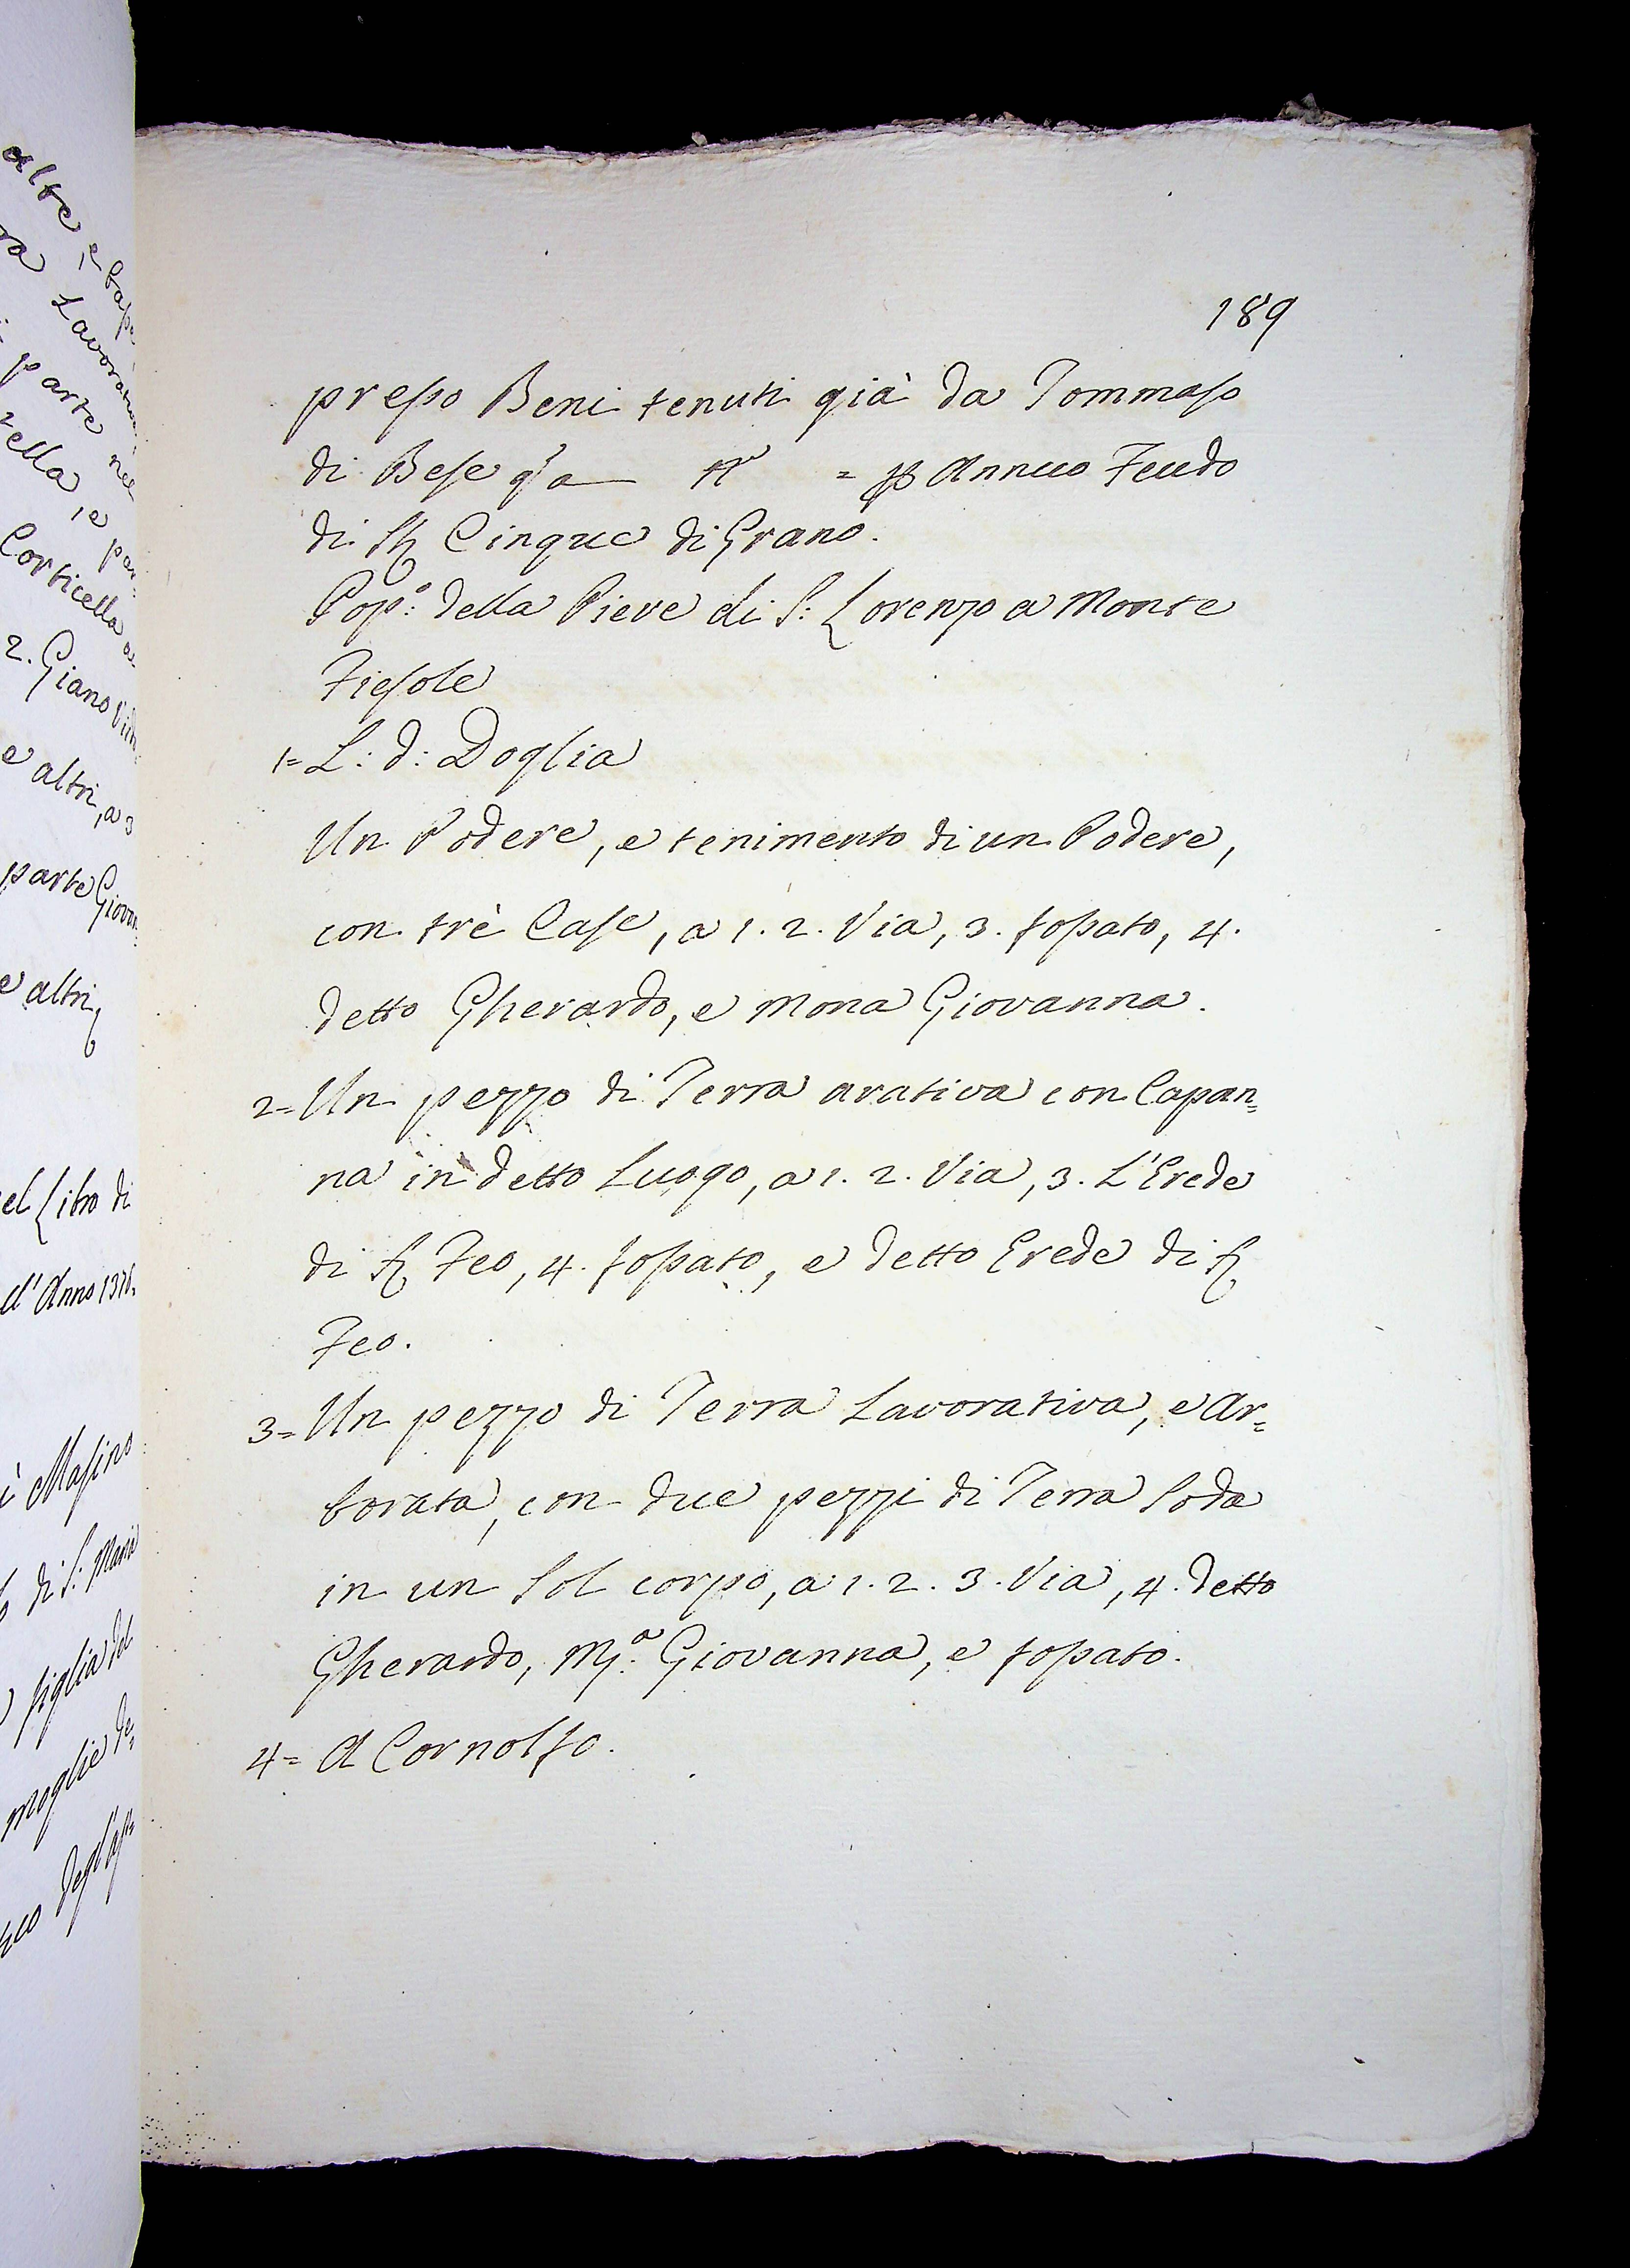 189
presso Beni tenuti già da Tommaso
di Bese q͞a = p Annuo Feudo
di St Cinque di Grano.
Pop:° della Pieve di S: Lorenzo a Monte
Fiesole
1= L: d: Doglia
Un Podere, e tenimento di un Podere,
con trè Case, a 1. 2. Via, 3. fossato, 4.
detto Gherardo, e Mona Giovanna.
2= Un pezzo di Terra arativa con Capan=
na in detto Luogo, a 1. 2. Via, 3. L'Erede
di Feo, 4. fossato, e detto Erede di
Feo.
3= Un pezzo di Terra Lavorativa, e Ar=
borata, con due pezzi di Terra Soda
in un Sol corpo, a 1. 2. 3. Via, 4. detto
Gherardo, M:ª Giovanna, e fossato.
4= A Cornolfo.
alte, e
Lavorativa
parte nel
tella, e par
Corticella a
2. Giano
e altri, a 3
parte Giovan
e altri
el Libro di
ll'Anno 1376.
Masino
di S: Maria
figlia del
moglie de=